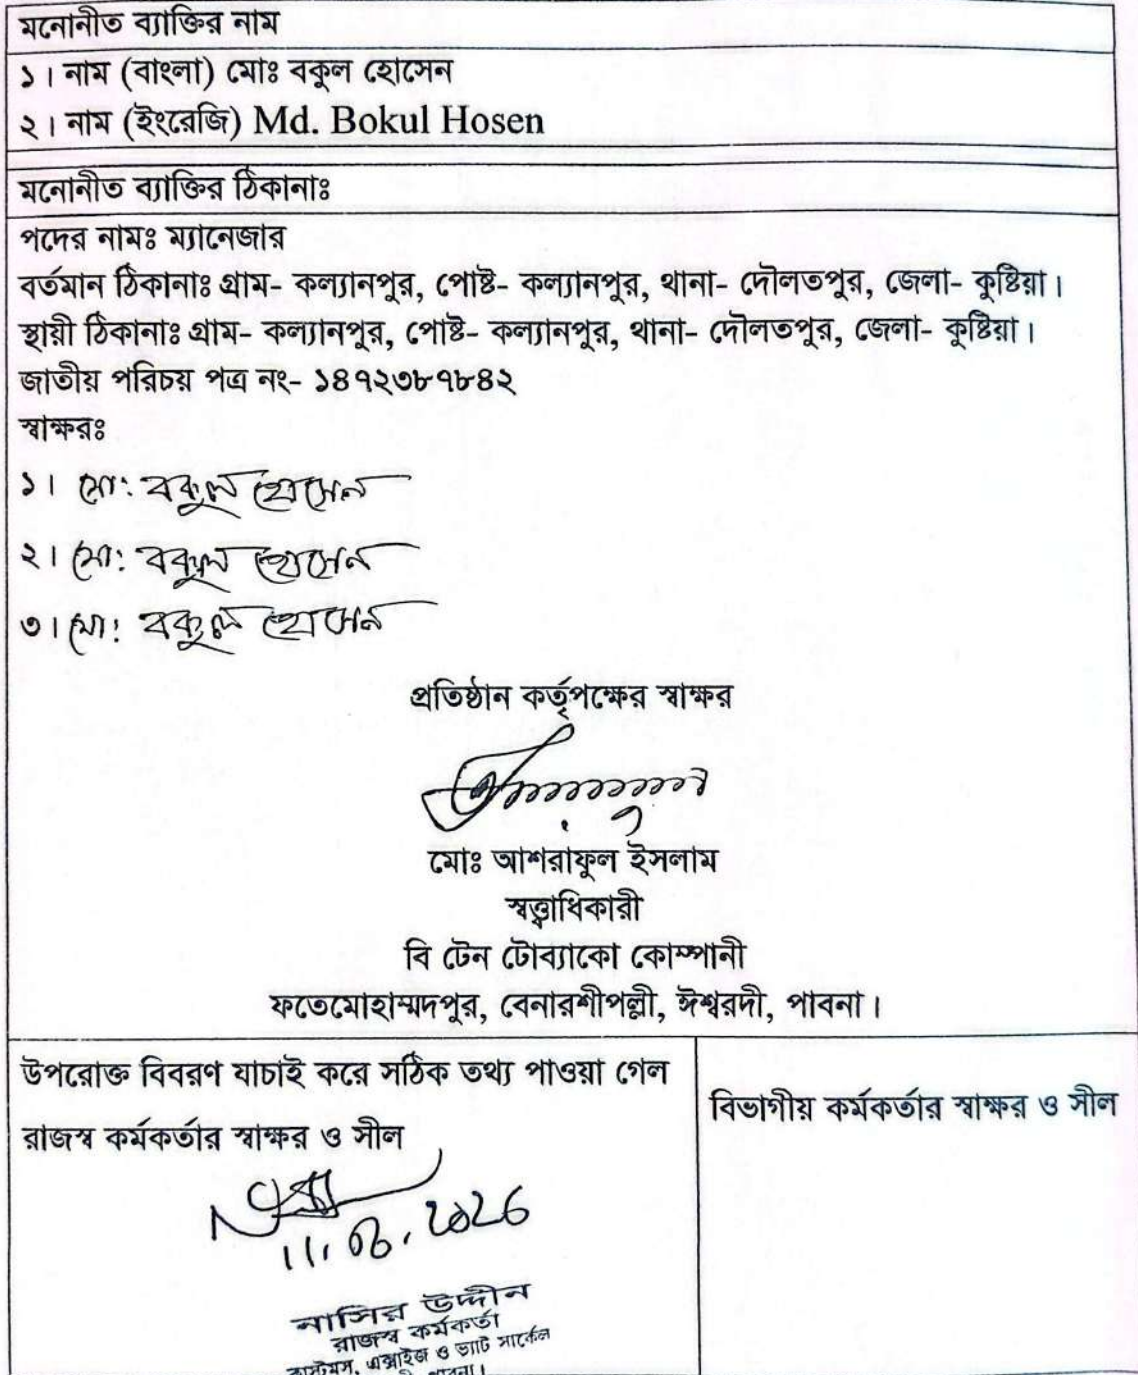 মনোনীত ব্যাক্তির নাম
১। নাম (বাংলা) মোঃ বকুল হোসেন
২। নাম (ইংরেজি) Md. Bokul Hosen
মনোনীত ব্যাক্তির ঠিকানাঃ
পদের নামঃ ম্যানেজার
বর্তমান ঠিকানাঃ গ্রাম- কল্যানপুর, পোষ্ট- কল্যানপুর, থানা- দৌলতপুর, জেলা- কুষ্টিয়া।
স্থায়ী ঠিকানাঃ গ্রাম- কল্যানপুর, পোষ্ট- কল্যানপুর, থানা- দৌলতপুর, জেলা- কুষ্টিয়া।
জাতীয় পরিচয় পত্র নং- ১৪৭২৩৮৭৮৪২
স্বাক্ষরঃ
১। মো: বকুল হোসেন
২। মো: বকুল হোসেন
৩। মো: বকুল হোসেন
প্রতিষ্ঠান কর্তৃপক্ষের স্বাক্ষর
মোঃ আশরাফুল ইসলাম
স্বত্ত্বাধিকারী
বি টেন টোব্যাকো কোম্পানী
ফতেমোহাম্মদপুর, বেনারশীপল্লী, ঈশ্বরদী, পাবনা।
উপরোক্ত বিবরণ যাচাই করে সঠিক তথ্য পাওয়া গেল
রাজস্ব কর্মকর্তার স্বাক্ষর ও সীল
বিভাগীয় কর্মকর্তার স্বাক্ষর ও সীল
নাসির উদ্দীন
রাজস্ব কর্মকর্তা
কাস্টমস, এক্সাইজ ও ভ্যাট সার্কেল
পাবনা।